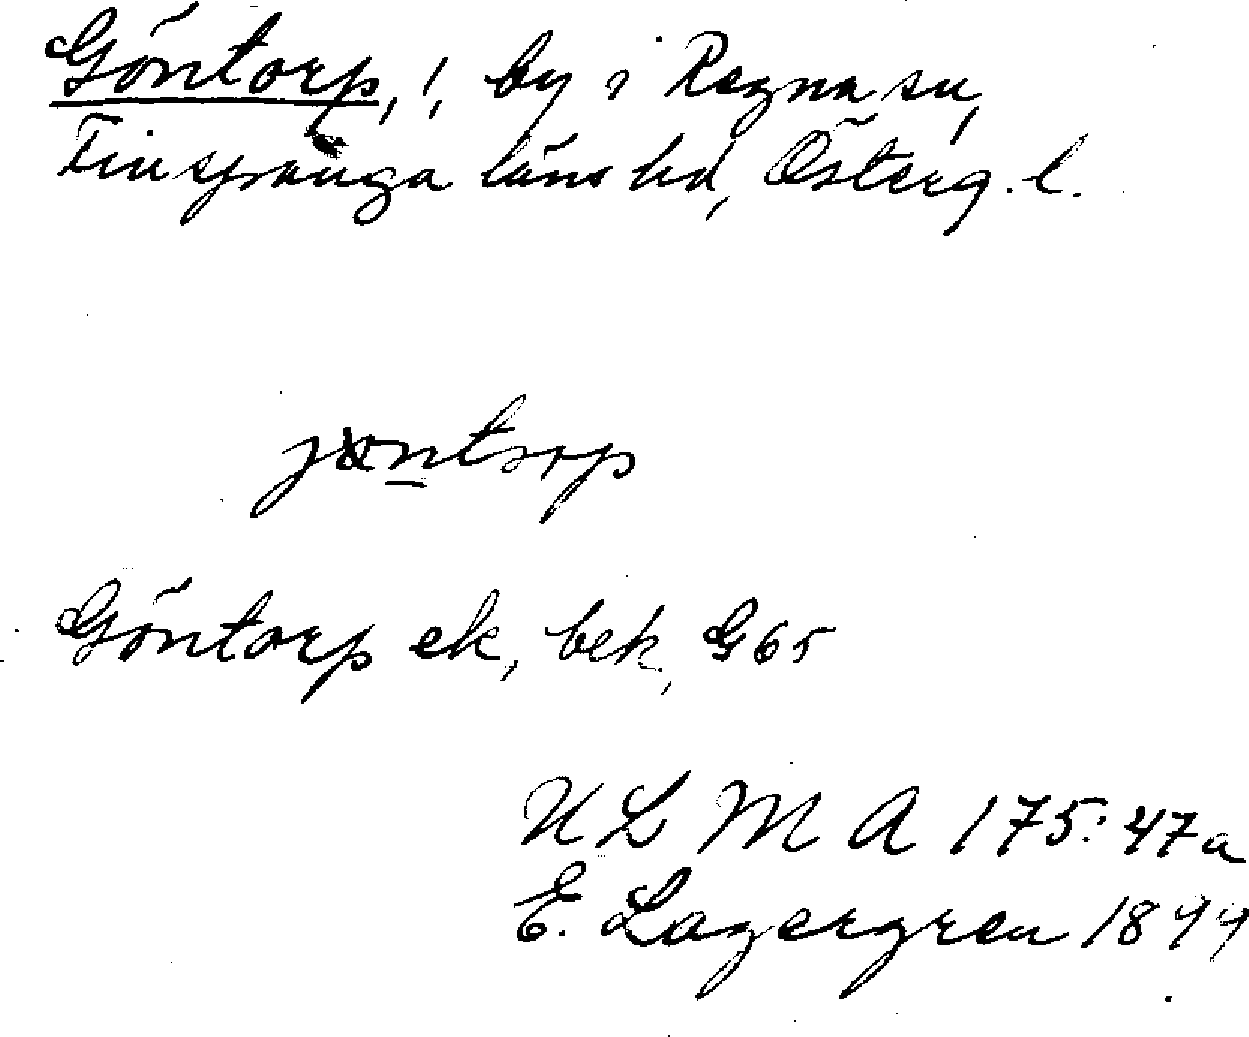 Göntorp, !, by i Regna sn,
Finspånga läns hd, Österg. l.
jöntorp
Göntorp ek, bek, G65
ULMA 175:47a
E. Lagergren 1899